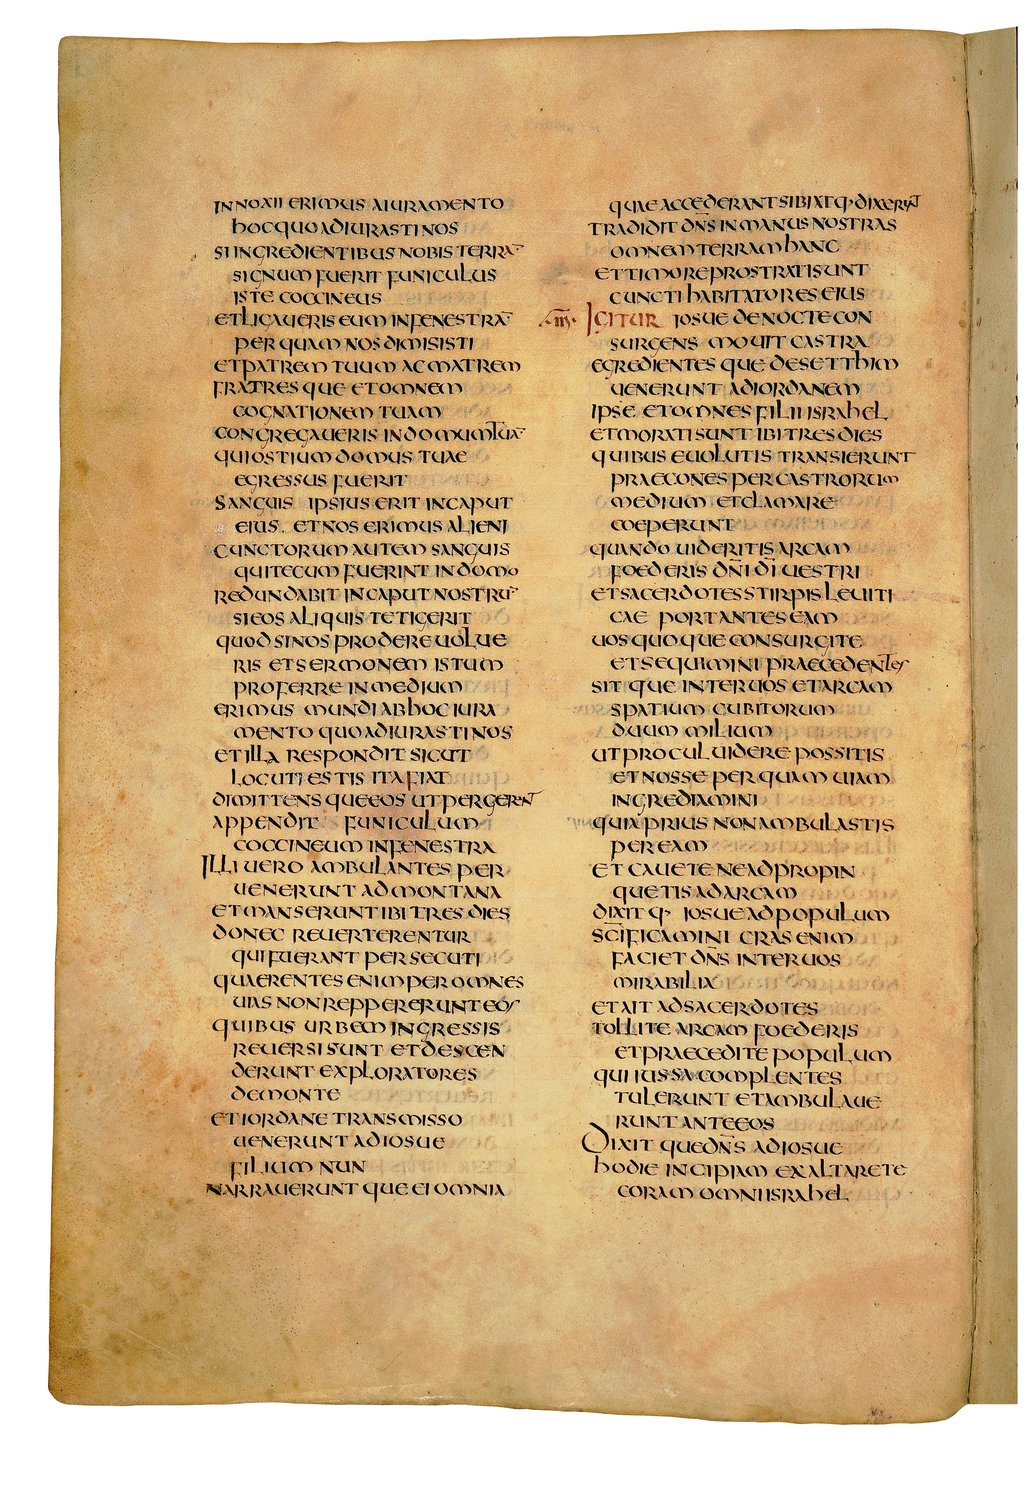 INNOXII ERIMUS A IURAMENTO
HOC QUO ADIURASTI NOS
SI INGREDIENTIBUS NOBIS TERRĀ
SIGNUM FUERIT FUNICULUS
ISTE COCCINEUS
ET LIGAUERIS EUM IN FENESTRĀ
PER QUAM NOS DIMISISTI
ET PATREM TUUM AC MATREM
FRATRESQUE ET OMNEM
COGNATIONEM TUAM
CONGREGAUERIS IN DOMUM TUĀ
QUI OSTIUM DOMUS TUAE
EGRESSUS FUERIT
SANGUIS IPSIUS ERIT IN CAPUT
EIUS. ET NOS ERIMUS ALIENI
CUNCTORUM AUTEM SANGUIS
QUI TECUM FUERINT IN DOMO
REDUNDABIT IN CAPUT NOSTRŪ
SI EOS ALIQUIS TETIGERIT
QUOD SI NOS PRODERE UOLUE
RIS ET SERMONEM ISTUM
PROFERRE IN MEDIUM
ERIMUS MUNDI AB HOC IURA
MENTO QUO ADIURASTI NOS
ET ILLA RESPONDIT SICUT
LOCUTI ESTIS ITA FIAT
DIMITTENSQUE EOS UT PERGERENT
APPENDIT FUNICULUM
COCCINEUM IN FENESTRA
ILLI UERO AMBULANTES PER
UENERUNT AD MONTANA
ET MANSERUNT IBI TRES DIES
DONEC REUERTERENTUR
QUI FUERANT PERSECUTI
QUAERENTES ENIM PER OMNES
UIAS NON REPPERERUNT EOS
QUIBUS URBEM INGRESSIS
REUERSI SUNT ET DESCEN
DERUNT EXPLORATORES
DE MONTE
ET IORDANE TRANSMISSO
UENERUNT AD IOSUE
FILIUM NUN
NARRAUERUNTQUE EI OMNIA
QUAE ACCEDERANT SIBI ATQ· DIXERUNT
TRADIDIT DN̄S IN MANUS NOSTRAS
OMNEM TERRAM HANC
ET TIMORE PROSTRATI SUNT
CUNCTI HABITATORES EIUS
·III· IGITUR IOSUE DE NOCTE CON
SURGENS MOUIT CASTRA
EGREDIENTESQUE DE SETTHIM
UENERUNT AD IORDANEM
IPSE ET OMNES FILII ISRAHEL
ET MORATI SUNT IBI TRES DIES
QUIBUS EUOLUTIS TRANSIERUNT
PRAECONES PER CASTRORUM
MEDIUM ET CLAMARE
COEPERUNT
QUANDO UIDERITIS ARCAM
FOEDERIS DN̄I DĪ UESTRI
ET SACERDOTES STIRPIS LEUITI
CAE PORTANTES EAM
UOS QUOQUE CONSURGITE
ET SEQUIMINI PRAECEDENTES
SITQUE INTER UOS ET ARCAM
SPATIUM CUBITORUM
DUUM MILIUM
UT PROCUL UIDERE POSSITIS
ET NOSSE PER QUAM UIAM
INGREDIAMINI
QUIA PRIUS NON AMBULASTIS
PER EAM
ET CAUETE NE ADPROPIN
QUETIS AD ARCAM
DIXITQ· IOSUE AD POPULUM
SC̄IFICAMINI CRAS ENIM
FACIET DN̄S INTER UOS
MIRABILIA
ET AIT AD SACERDOTES
TOLLITE ARCAM FOEDERIS
ET PRAECEDITE POPULUM
QUI IUSSA COMPLENTES
TULERUNT ET AMBULAUE
RUNT ANTE EOS
DIXITQUE DN̄S AD IOSUE
HODIE INCIPIAM EXALTARE TE
CORAM OMNI ISRAHEL